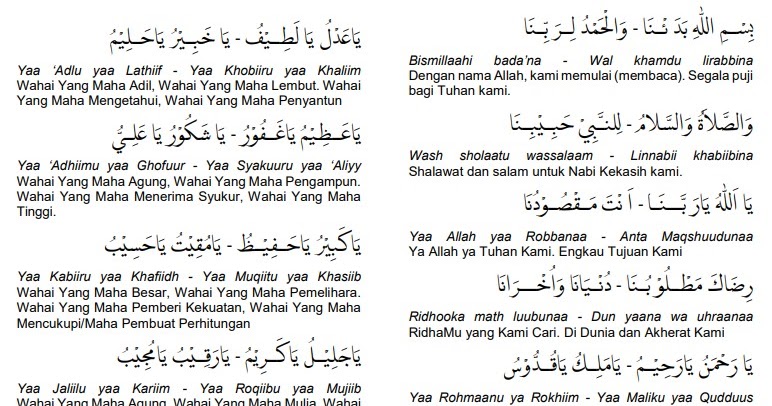 بِسْمِ اللهِ بَدَ ئْـنَا - وَالْحَمْدُ لِـرَ بِّـنَا
Bismillaahi bada'na - Wal khamdu lirabbina
Dengan nama Allah, kami memulai (membaca). Segala puji
bagi Tuhan kami.
وَالصَّلاَةُ وَالسَّلاَمُ - لِلنَّبِيِّ حَبِيْبِـنَا
Wash sholaatu wassalaam - Linnabii khabiibina
Shalawat dan salam untuk Nabi Kekasih kami.
يَا اَللهُ يَارَ بَّـنَـا - اَ نْتَ مَـقْصُـوْدُنَا
Yaa Allah yaa Robbanaa - Anta Maqshuudunaa
Ya Allah ya Tuhan Kami. Engkau Tujuan Kami
رِضَاكَ مَطْـلُوْ بُـنَا - دُنْـيَانَا وَاُخْــرَانَا
Ridhooka math luubunaa - Dun yaana wa uhraanaa
RidhaMu yang Kami Cari. Di Dunia dan Akherat Kami
يَا رَحْمٰنُ يَارَحِيْـمُ - يَامَلِـكُ يَاقُـدُّوْسُ
Yaa Rohmaanu ya Rokhiim - Yaa Maliku yaa Qudduus
يَاعَدْلُ يَا لَطِـيْـفُ - يَا خَبِـيْرُ يَاحَلِـيْمُ
Yaa 'Adlu yaa Lathiif - Yaa Khobiiru yaa Khaliim
Wahai Yang Maha Adil, Wahai Yang Maha Lembut. Wahai
Yang Maha Mengetahui, Wahai Yang Maha Penyantun
يَاعَـظِـيْمُ يَاغَـفُـوْرُ - يَا شَكُوْرُ يَا عَلِـيُّ
Yaa 'Adhiimu yaa Ghofuur - Yaa Syakuuru yaa 'Aliyy
Wahai Yang Maha Agung, Wahai Yang Maha Pengampun.
Wahai Yang Maha Menerima Syukur, Wahai Yang Maha
Tinggi.
يَاكَبِيْرُ يَاحَـفِـيْـظُ - يَامُقِيْتُ يَاحَسِيْبُ
Yaa Kabiiru yaa Khafiidh - Yaa Muqiitu yaa Khasiib
Wahai Yang Maha Besar, Wahai Yang Maha Pemelihara.
Wahai Yang Maha Pemberi Kekuatan, Wahai Yang Maha
Mencukupi/Maha Pembuat Perhitungan
يَاجَلِيْـلُ يَاكَـرِيْـمُ - يَارَقِـيْبُ يَامُجِيْبُ
Yaa Jaliilu yaa Kariim - Yaa Roqiibu yaa Mujiib
Wahai Yang Maha Agung, Wahai Yang Maha Mulia. Wahai